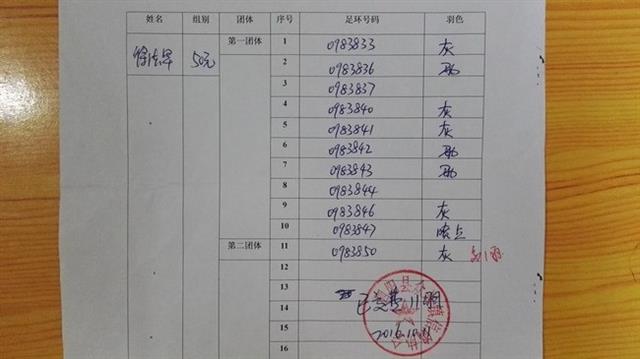 姓名 组别 团体 序号 足环号码 羽色
50元 第一团体 1 0983833 灰
2 0983836
3 0983837
4 0983840 灰
5 0983841 灰
6 0983842
7 0983843
8 0983844
9 0983846 灰
10 0983847
第二团体 11 0983850 灰
12
13
14 11羽
15 2016.10.11
16